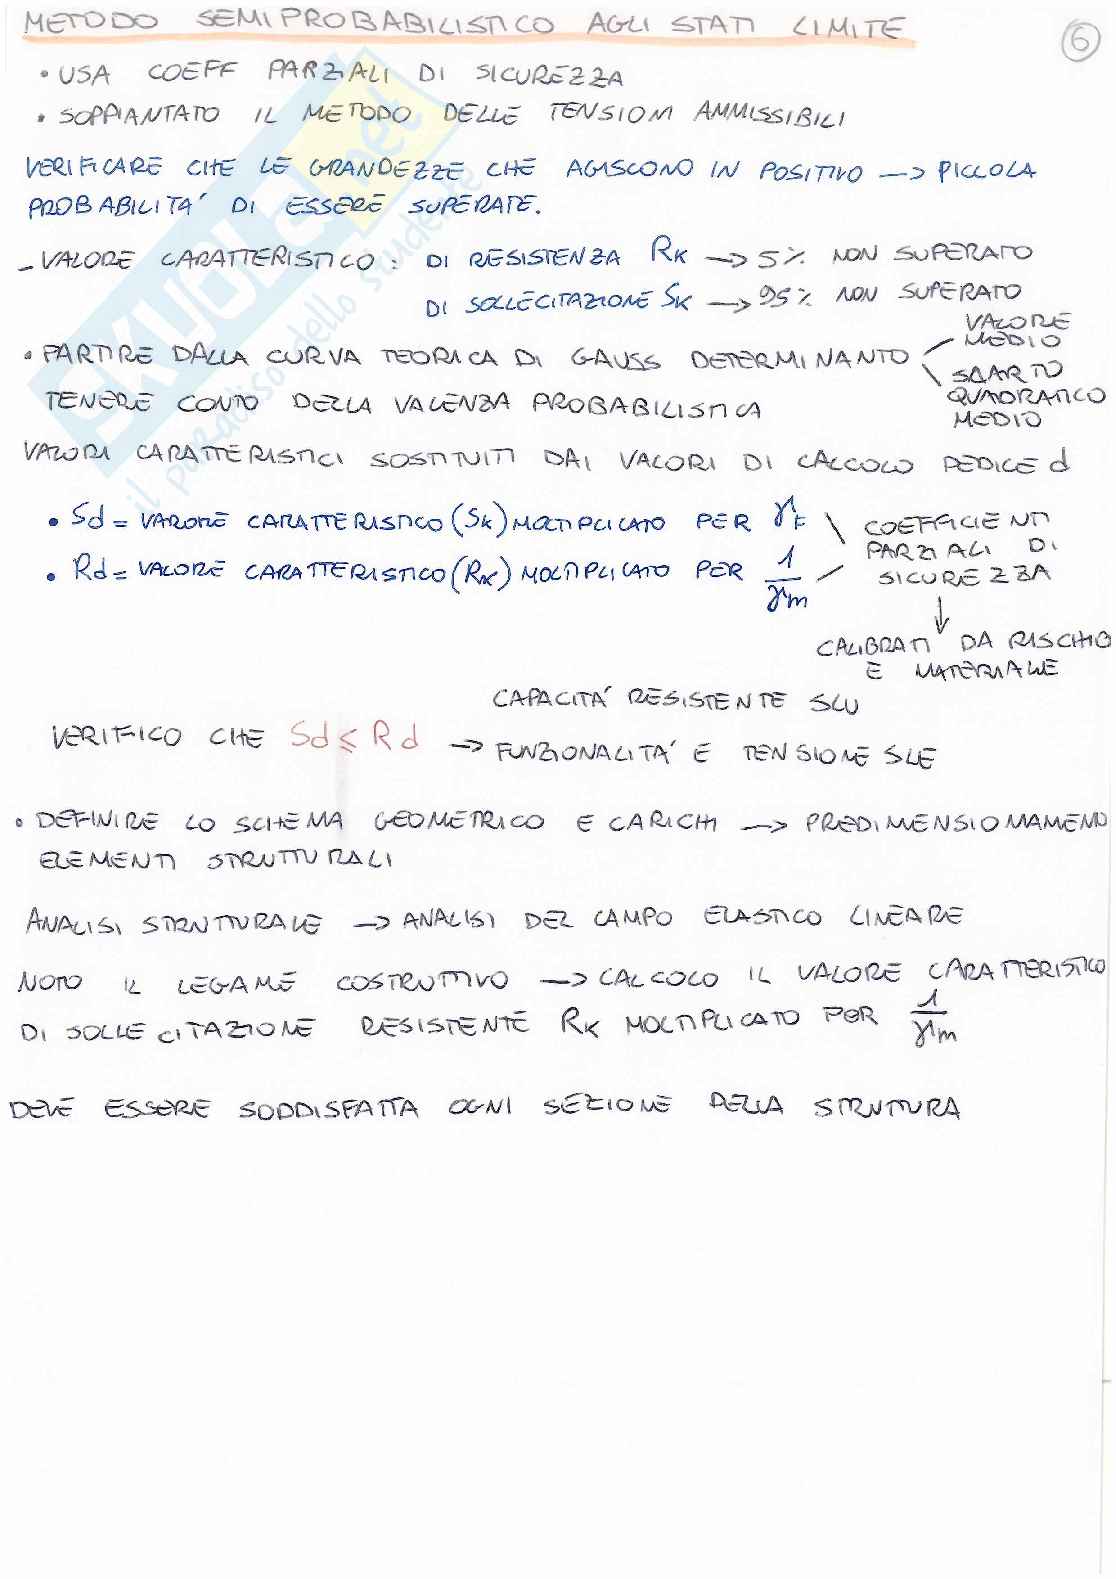 METODO SEMIPROBABILISTICO AGLI STATI LIMITE
6
• USA COEFF PARZIALI DI SICUREZZA
• SOPPIANTATO IL METODO DELLE TENSIONI AMMISSIBILI
VERIFICARE CHE LE GRANDEZZE CHE AGISCONO IN POSITIVO → PICCOLA
PROBABILITA' DI ESSERE SUPERATE.
- VALORE CARATTERISTICO: DI RESISTENZA Rk → 5% NON SUPERATO
DI SOLLECITAZIONE Sk → 95% NON SUPERATO
• PARTIRE DALLA CURVA TEORICA DI GAUSS DETERMINANTO
VALORE
MEDIO
SCARTO
QUADRATICO
MEDIO
TENERE CONTO DELLA VALENZA PROBABILISTICA
VALORI CARATTERISTICI SOSTITUITI DAI VALORI DI CALCOLO PEDICE d
• Sd = VALORE CARATTERISTICO (Sk) MOLTIPLICATO PER γF
• Rd = VALORE CARATTERISTICO (Rk) MOLTIPLICATO PER 1/γm
COEFFICIENTI
PARZIALI DI
SICUREZZA
↓
CALIBRATI DA RISCHIO
E MATERIALE
VERIFICO CHE Sd ≤ Rd →
CAPACITA' RESISTENTE SLU
FUNZIONALITA' E TENSIONE SLE
• DEFINIRE LO SCHEMA GEOMETRICO E CARICHI → PREDIMENSIONAMENO
ELEMENTI STRUTTURALI
ANALISI STRUTTURALE → ANALISI DEL CAMPO ELASTICO LINEARE
NOTO IL LEGAME COSTRUTTIVO → CALCOLO IL VALORE CARATTERISTICO
DI SOLLECITAZIONE RESISTENTE Rk MOLTIPLICATO PER 1/γm
DEVE ESSERE SODDISFATTA OGNI SEZIONE DELLA STRUTTURA
SKUOLA.net
il paradiso dello studente